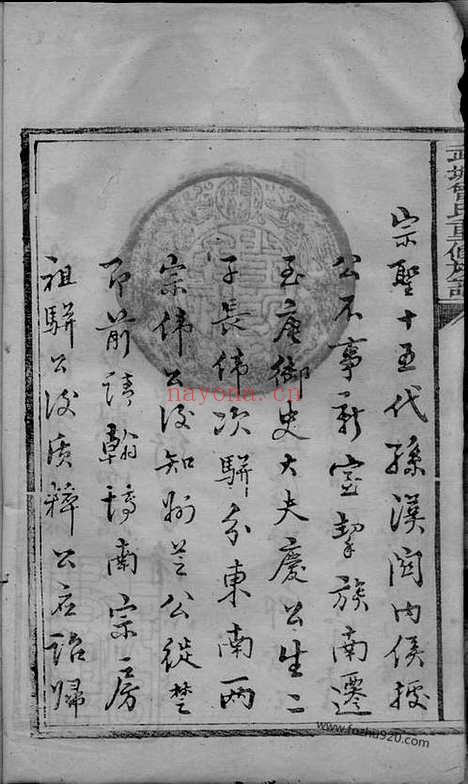 武城曾氏重修族譜
宗聖十五代孫漢關内侯據
公不事新室挈族南遷
至唐御史大夫慶公生二
子長偉次駢分東南兩
宗偉公後知州芝公從楚
即前請翰博南宗房
祖駢公後質粹公在詔歸
nayona.cn
www.fozhu920.com